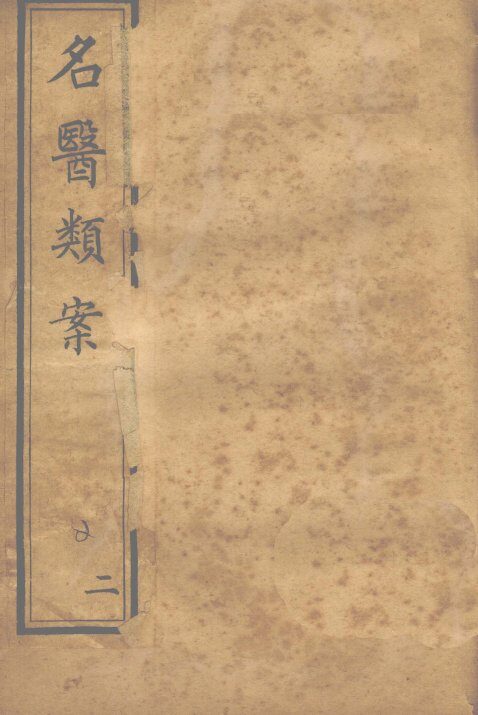 名醫類案
二